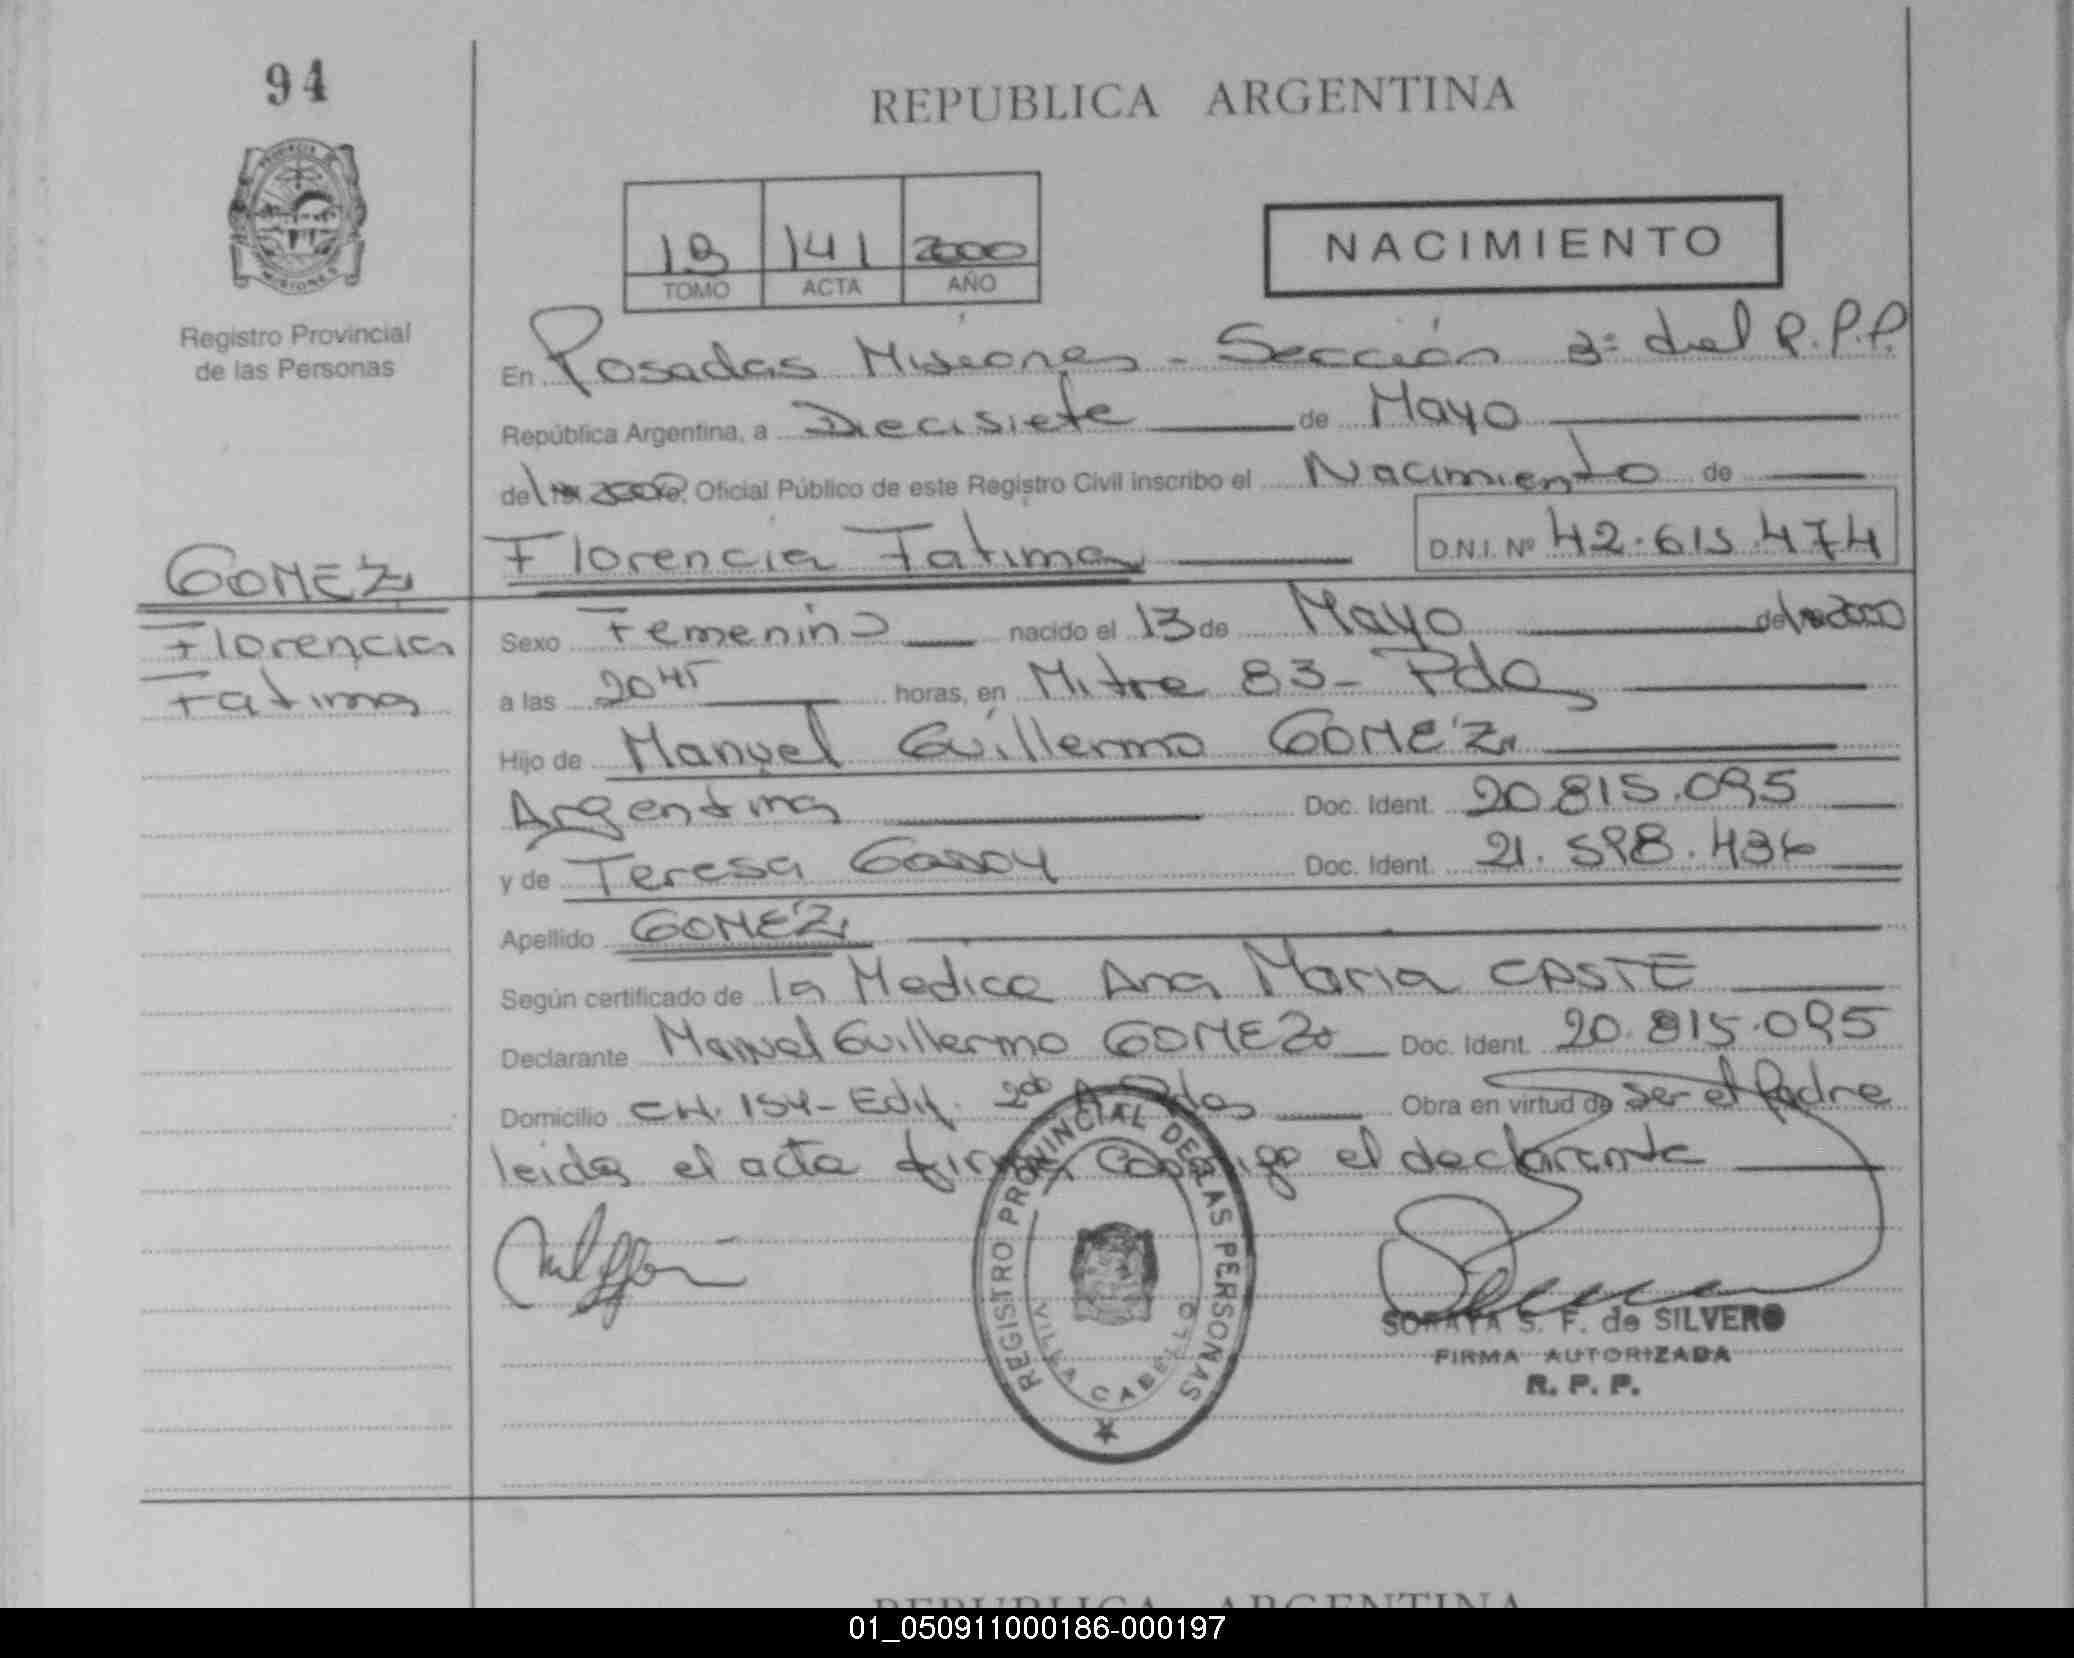 94
REPUBLICA ARGENTINA
PROVINCIA DE
MISIONES
Registro Provincial
de las Personas
19 141 2000
TOMO ACTA AÑO
NACIMIENTO
En Posadas Misiones - Sección 3ª del R.P.P.
República Argentina, a Diecisiete de Mayo
del 2000 Oficial Público de este Registro Civil inscribo el Nacimiento de
Florencia Fatima D.N.I. Nº 42.615.474
GOMEZ
Florencia
Fatima
Sexo Femenino nacido el 13 de Mayo de 2000
a las 20 45 horas, en Mitre 83 - Pdas
Hijo de Manuel Guillermo GOMEZ
Argentina Doc. Ident. 20.815.095
y de Teresa Doc. Ident. 21.598.436
Apellido GOMEZ
Según certificado de la Medica Ana Maria CASTE
Declarante Manuel Guillermo GOMEZ Doc. Ident. 20.815.095
Domicilio CH. 154 - Edif. Pdas Obra en virtud de ser el Padre
leida el acta firma conmigo el declarante
REGISTRO PROVINCIAL DE LAS PERSONAS
VILLA CABELLO
SORAYA S. F. de SILVERO
FIRMA AUTORIZADA
R. P. P.
REPUBLICA ARGENTINA
01_050911000186-000197